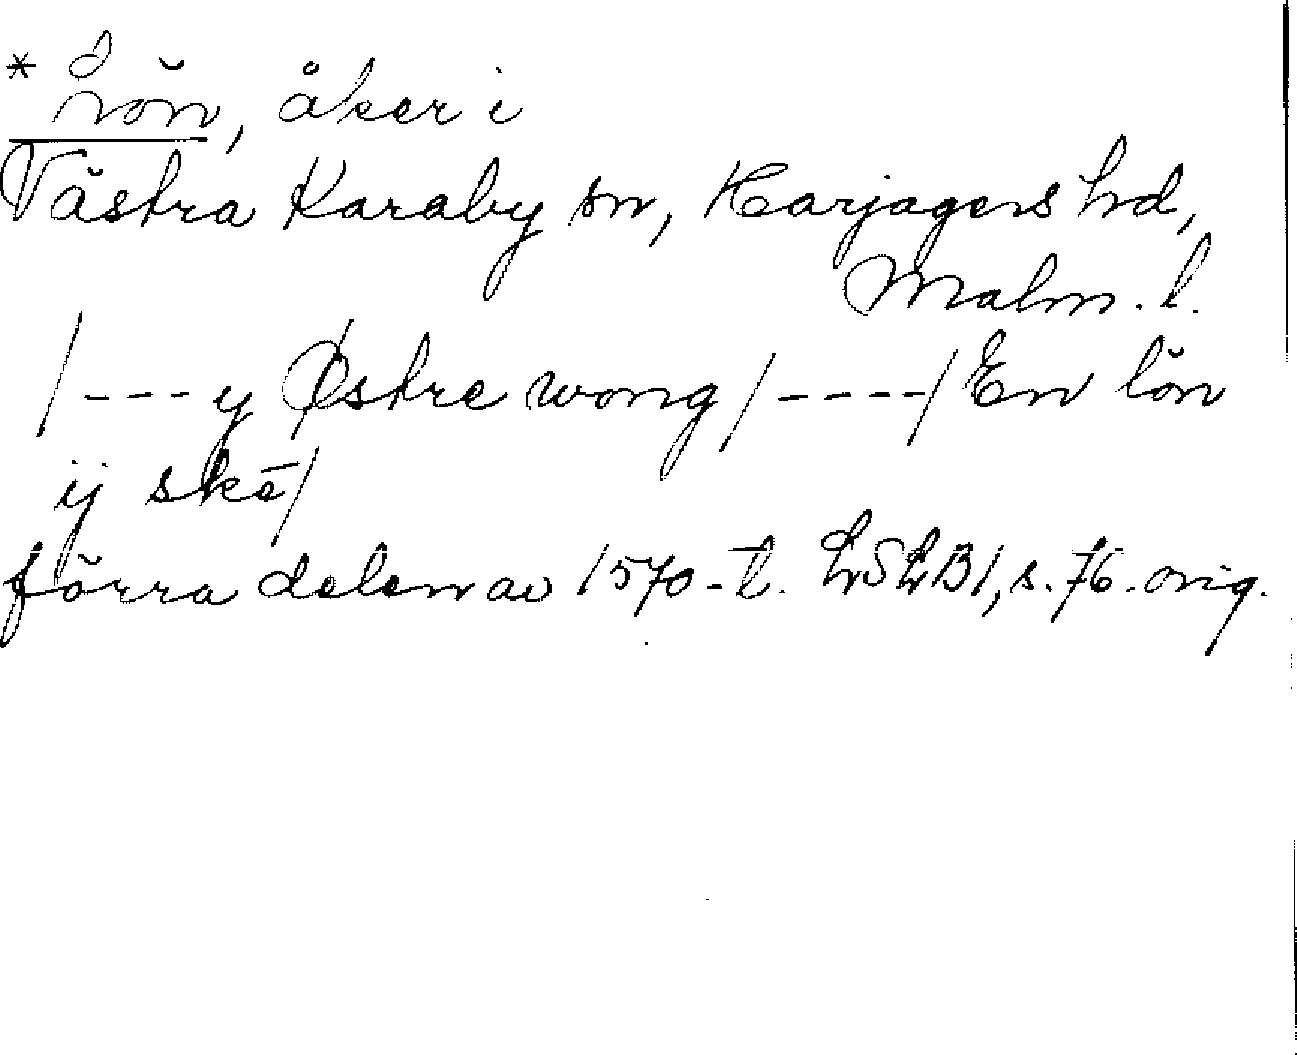 * Lön, åker i
Västra Karaby sn, Harjagers hd,
Malm. l.
/---y Østre wong/----/En lön
ij skē/
förra delen av 1570-t. LSLB1, s. 76. orig.